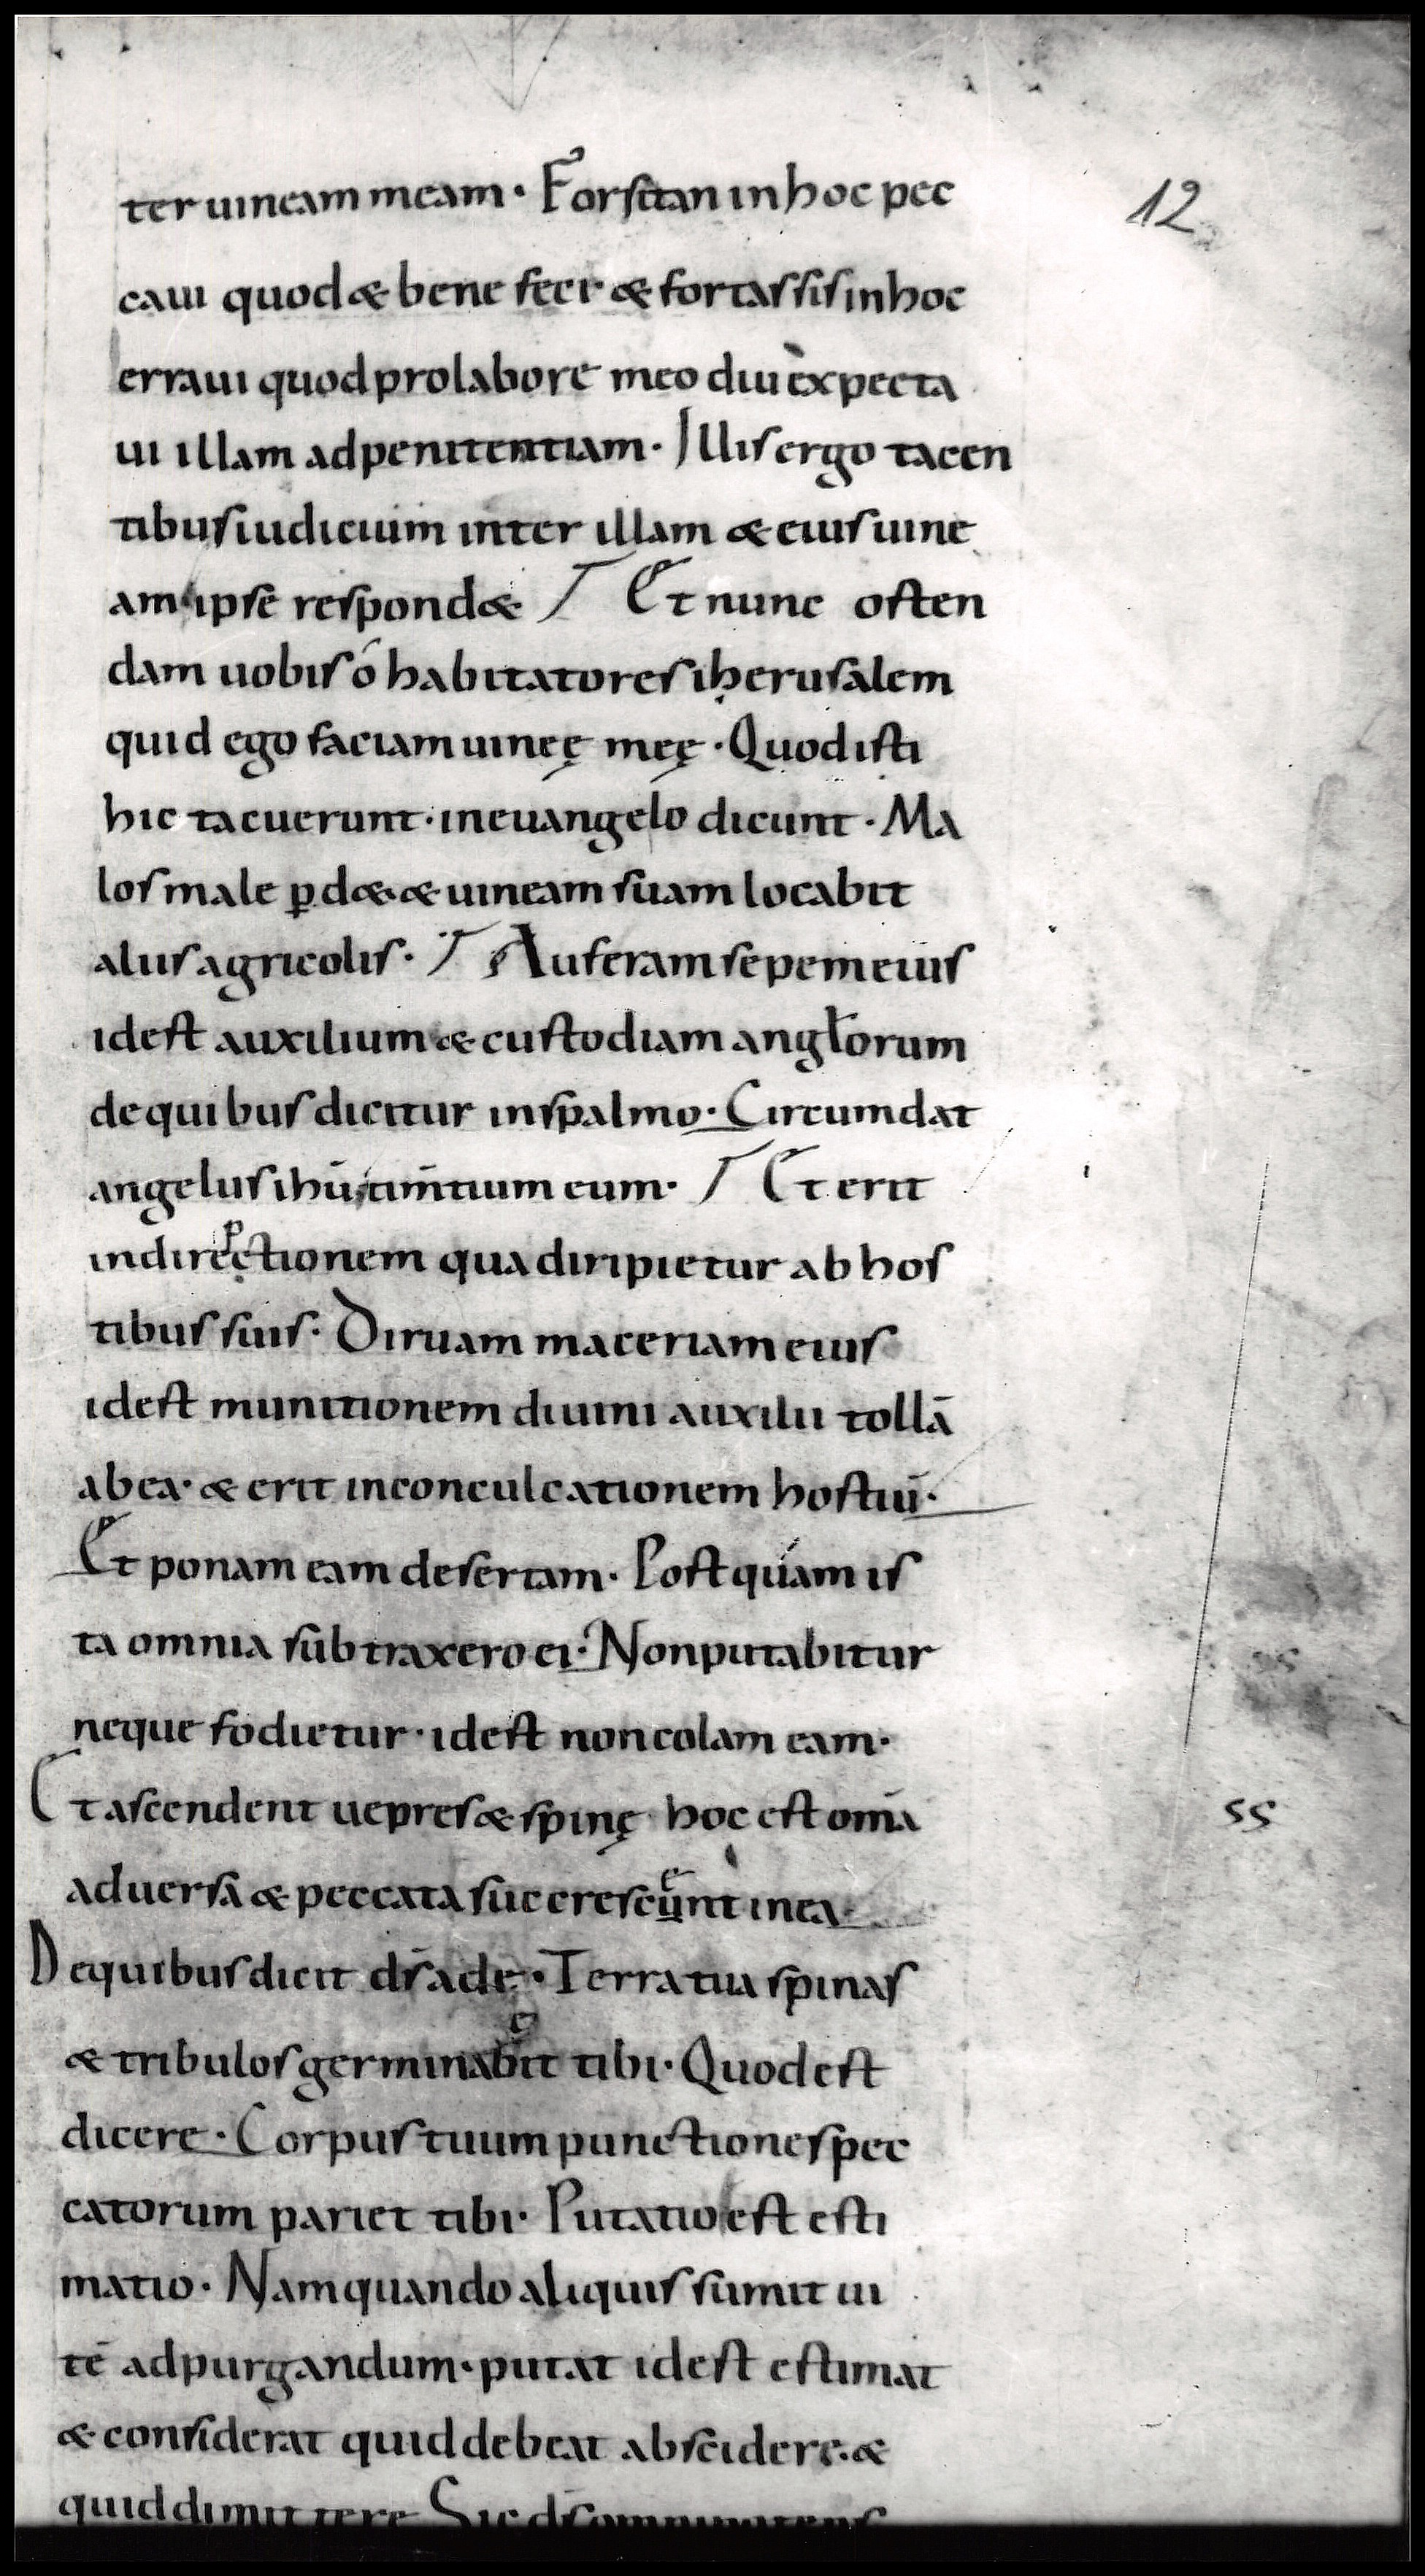 ter uineam meam · Forsitan in hoc pec
12
caui quod & bene feci · & fortassis in hoc
erraui quod pro labore meo diu expecta
ui illam ad penitentiam · Illis ergo tacen
tibus iudicium inter illam & eius uine
am ipse respond& / Et nunc osten
dam uobis ó habitatores iherusalem
quid ego faciam uineę meę · Quod isti
hic tacuerunt · in euangelo dicunt · Ma
los male ꝑd& · & uineam suam locabit
aliis agricolis · / Auferam sepem eius
idest auxilium & custodiam anglorum
de quibus dicitur in spalmo · Circumdat
angelus ihū timtium eum · / Et erit
in direptionem qua diripietur ab hos
tibus suis · Diruam maceriam eius
idest munitionem diuini auxilii tollā
ab ea · & erit in conculcationem hostiū ·
Et ponam eam desertam · Postquam is
ta omnia subtraxero ei · Non putabitur
neque fodietur · idest non colam eam ·
Et ascendent uepres & spinę hoc est omīa
aduersa & peccata succrescent in ea
ss
De quibus dicit ds̄ adę · Terra tua spinas
& tribulos germinabit tibi · Quod est
dicere · Corpus tuum punctiones pec
catorum pariet tibi · Putatio est esti
matio · Nam quando aliquis sumit ui
tē ad purgandum · putat idest estimat
& considerat quid debeat abscidere · &
quid dimittere Sic ds̄